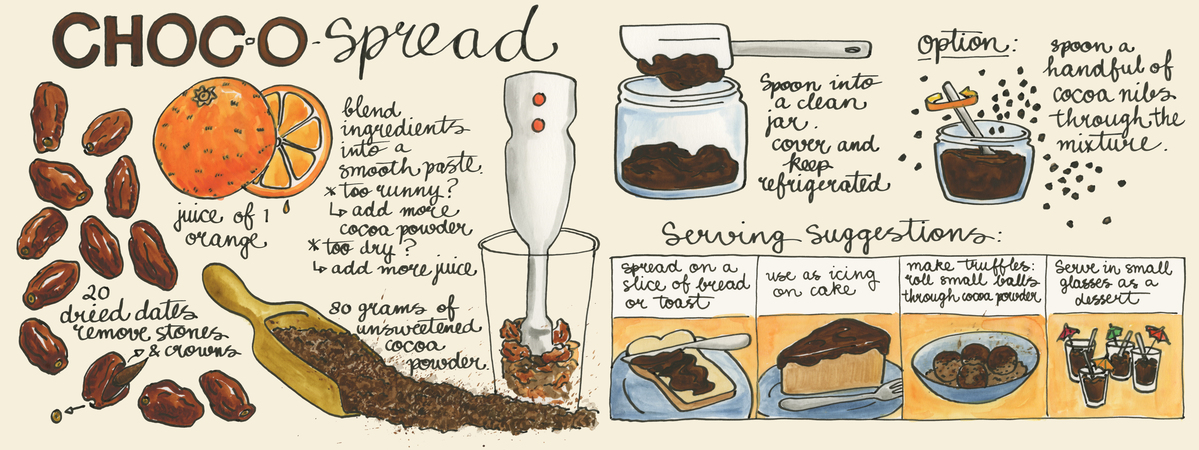 CHOC-O-spread
juice of 1
orange
20
dried dates
remove stones
& crowns
blend
ingredients
into a
smooth paste.
* too runny?
↳ add more
cocoa powder
* too dry?
↳ add more juice
80 grams of
unsweetened
cocoa
powder.
Spoon into
a clean
jar.
cover and
keep
refrigerated
option:
spoon a
handful of
cocoa nibs
through the
mixture.
Serving suggestions:
spread on a
slice of bread
or toast
use as icing
on cake
make truffles:
roll small balls
through cocoa powder
Serve in small
glasses as a
dessert